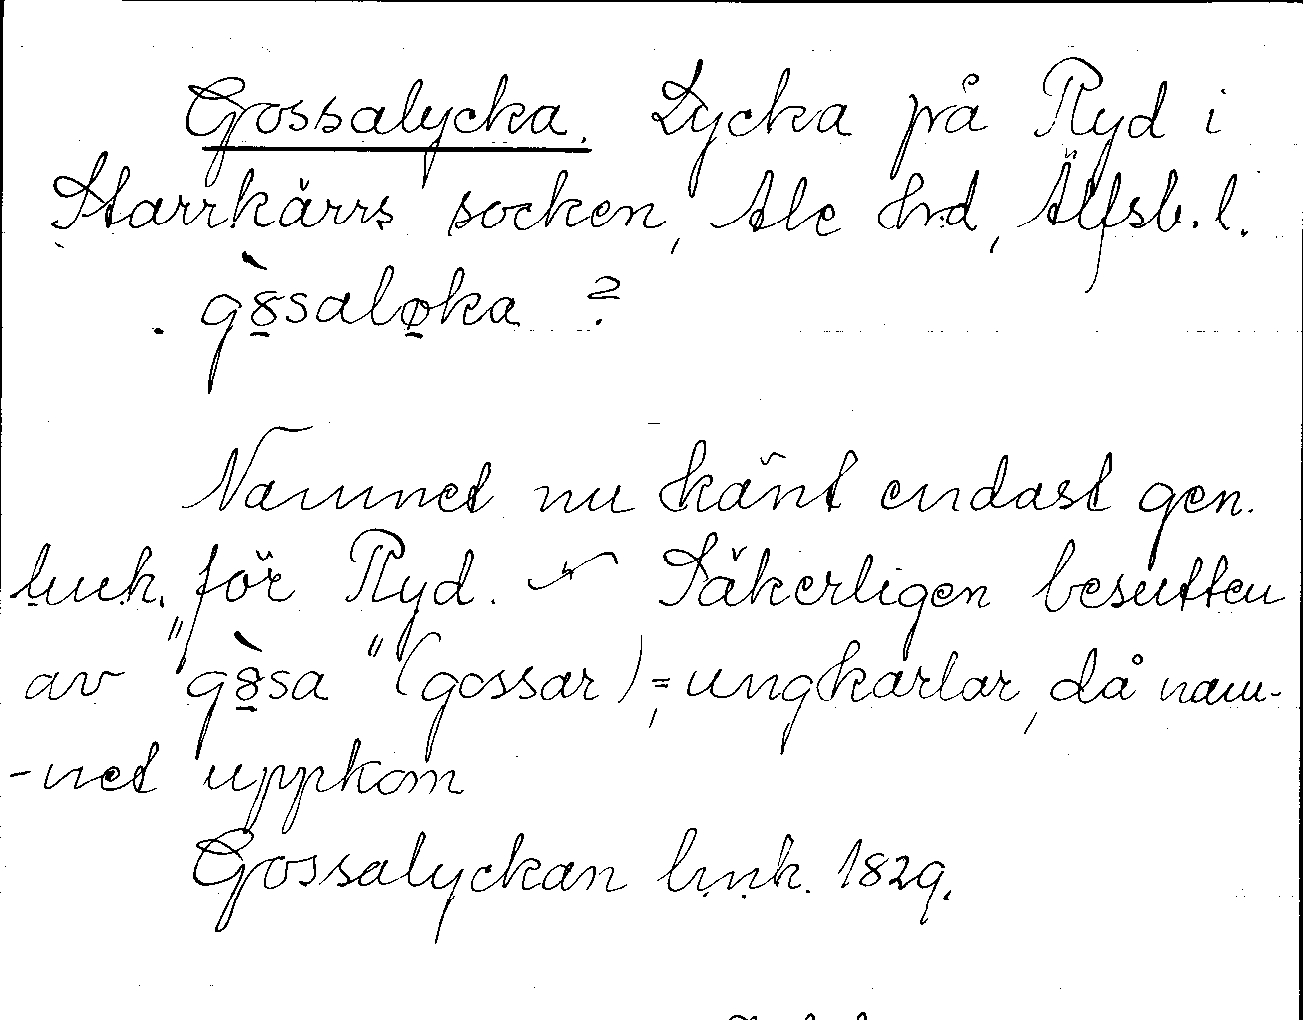 Gossalycka. Lycka på Ryd i
Starrkärrs socken, Ale hrd, Älfsb. l.
. gòsaløka ?
Namnet nu känt endast gen.
l.m.k. för Ryd. Säkerligen besutten
av "gòsa" (gossar), = ungkarlar, då nam-
-net uppkom
Gossalyckan l.m.k. 1829.